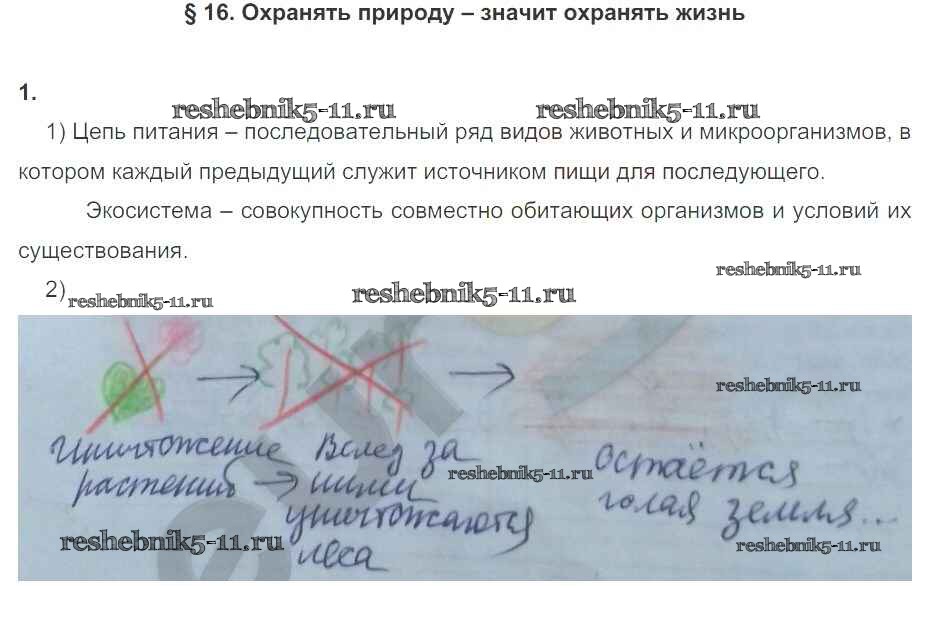 § 16. Охранять природу – значит охранять жизнь
1.
reshebnik5-11.ru reshebnik5-11.ru
1) Цепь питания – последовательный ряд видов животных и микроорганизмов, в
котором каждый предыдущий служит источником пищи для последующего.
Экосистема – совокупность совместно обитающих организмов и условий их
существования.
reshebnik5-11.ru
2) reshebnik5-11.ru reshebnik5-11.ru
reshebnik5-11.ru
Уничтожение
растений →
Вслед за
ними
уничтожаются
леса
reshebnik5-11.ru
Остаётся
голая земля...
reshebnik5-11.ru
reshebnik5-11.ru